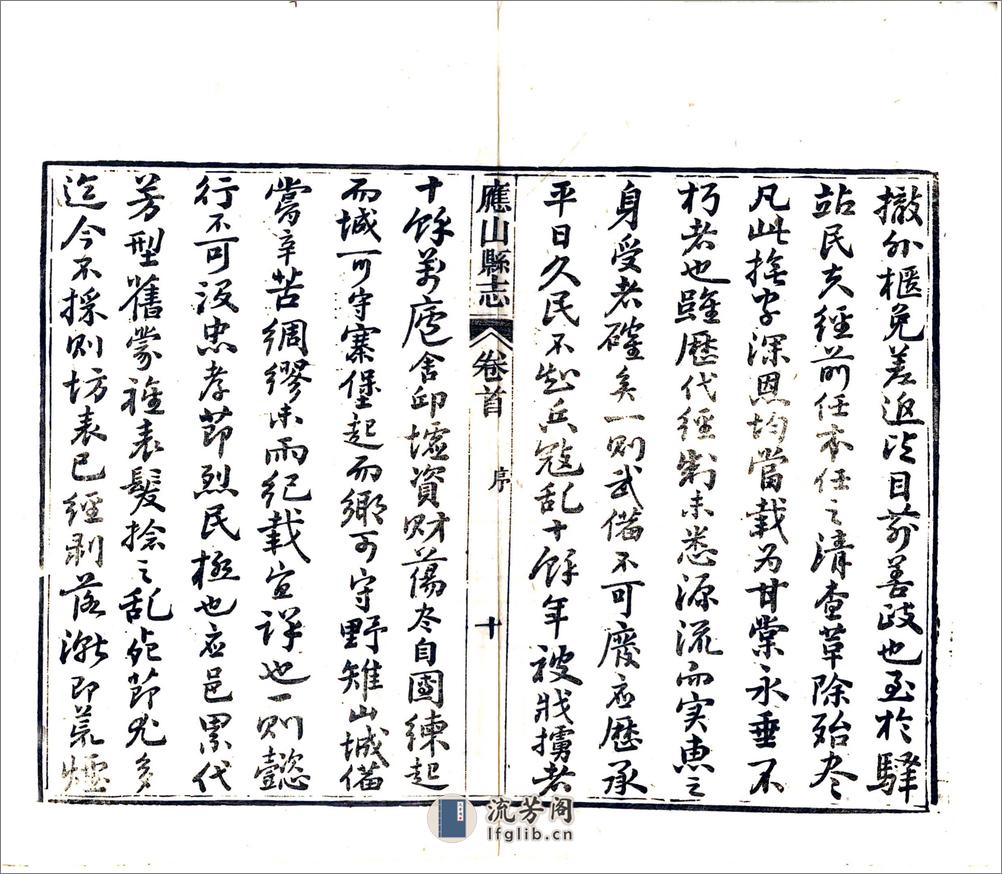 撤外櫃免差返皆目前善政也至於驛
站民夫經前任本任之清查革除殆盡
凡此撫字深恩均當載为甘棠永垂不
朽者也雖歷代經制未悉源流而实惠之
身受者確矣一則武備不可廢应歷承
平日久民不知兵寇乱十餘年被戕擄者
應山縣志 卷首 序 十
十餘萬廬舍邱墟資财蕩尽自團練起
而城可守寨堡起而鄉可守野雉山城備
嘗辛苦綢繆未雨纪載宜詳也一則懿
行不可没忠孝節烈民極也应邑累代
芳型舊蒙旌表髮捻之乱死節尤多
迄今不採則坊表已經剥落漸即荒煙
流芳阁
lfglib.cn